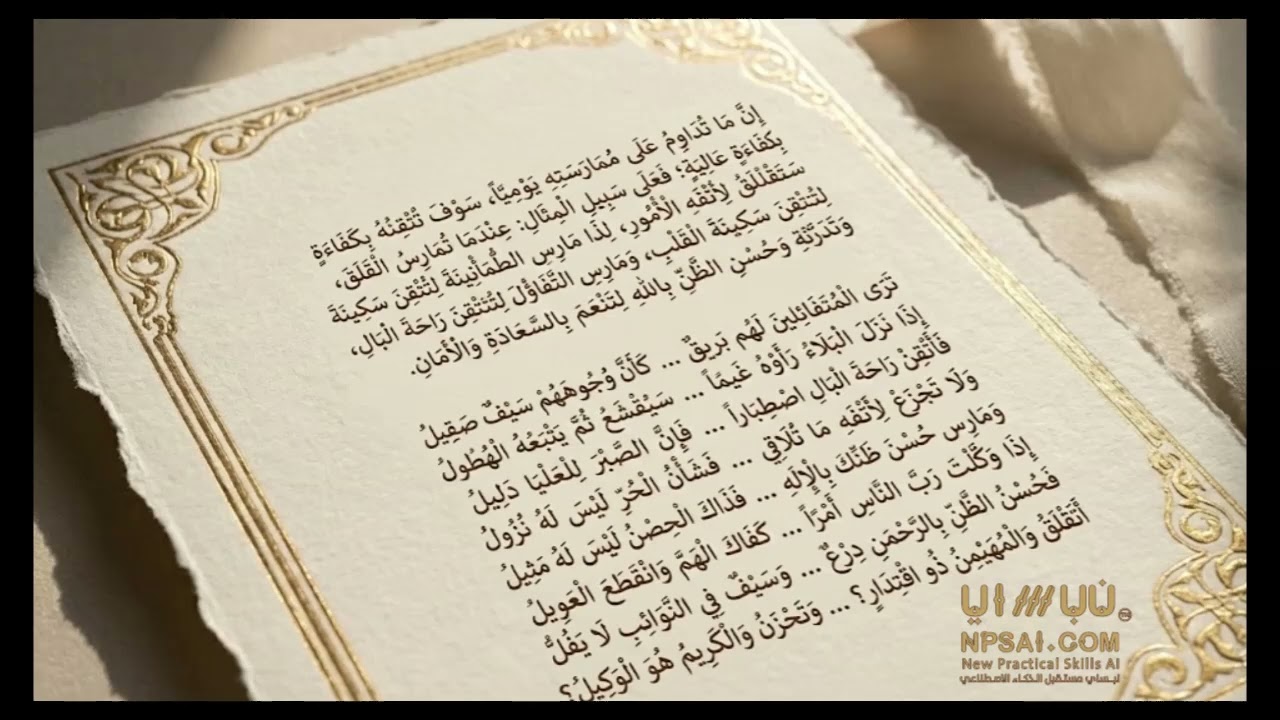 إِنَّ مَا تُدَاوِمُ عَلَى مُمَارَسَتِهِ يَوْمِيَّاً، سَوْفَ تُتْقِنُهُ بِكَفَاءَةٍ
بِكَفَاءَةٍ عَالِيَةٍ؛ فَعَلَى سَبِيلِ الْمِثَالِ: عِنْدَمَا تُمَارِسُ الْقَلَقَ،
سَتَقْلَلَقُ لِأَتْفَهِ الْأُمُورِ، لِذَا مَارِسِ الطُّمَأْنِينَةَ لِتُتْقِنَ سَكِينَةَ
لِتُتْقِنَ سَكِينَةَ الْقَلْبِ، وَمَارِسِ التَّفَاؤُلَ لِتُتْقِنَ رَاحَةَ الْبَالِ،
وَتَدَرَّنَّةِ وَحُسْنِ الظَّنِّ بِاللهِ لِتَنْعَمَ بِالسَّعَادَةِ وَالْأَمَانِ.
تَرَى الْمُتَفَائِلِينَ لَهُم بَرِيقٌ ... كَأَنَّ وُجُوهَهُمْ سَيْفٌ صَقِيلُ
إِذَا نَزَلَ الْبَلَاءُ رَأَوْهُ غَيمًاً ... سَيُقْشَعُ ثُمَّ يَتْبَعُهُ الْهُطُولُ
فَأَتْقِنْ رَاحَةَ الْبَالِ اصْطِبَاراً ... فَإِنَّ الصَّبْرَ لِلْعَلْيَا دَلِيلُ
وَلَا تَجْزَعْ لِأَتْفَهِ مَا تُلَاقِي ... فَشَأْنُ الْحُرِّ لَيْسَ لَهُ نُزُولُ
وَمَارِس حُسْنَ ظَنِّكَ بِالْإِلَهِ ... فَذَاكَ الْحِصْنُ لَيْسَ لَهُ مَثِيلُ
إِذَا وَكَّلْتَ رَبَّ النَّاسِ أَمْرًاً ... كَفَاكَ الْهَمَّ وَانْقَطَعَ الْعَوِيلُ
فَحُسْنُ الظَّنِّ بِالرَّحْمَنِ دِرْعٌ ... وَسَيْفٌ فِي النَّوَائِبِ لَا يَفُلُّ
أَتَقْلَقُ وَالْمُهَيْمِنُ ذُو اقْتِدَارٍ؟ ... وَتَحْزَنُ وَالْكَرِيمُ هُوَ الْوَكِيلُ؟
NPSAI.COM
New Practical Skills AI
نبساي مستقبل الذكاء الاصطناعي